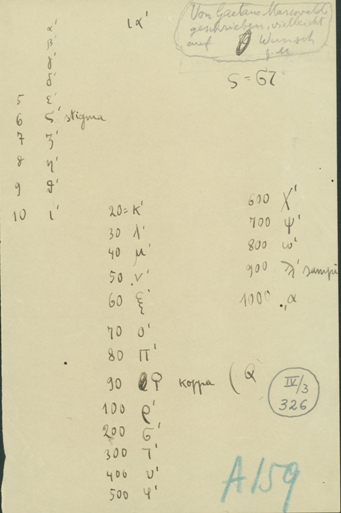 ια'
Von Gaetano Marcovaldi
geschrieben, vielleicht
auf Wunsch
α'
β'
γ'
δ'
5 ε'
6 ς' stigma
7 ζ'
8 η'
9 θ'
10 ι'
20= κ'
30 λ'
40 μ'
50 ν'
60 ξ'
70 ο'
80 π'
90 ϙ' koppa (Q
100 ρ'
200 σ'
300 τ'
400 υ'
500 φ'
600 χ'
700 ψ'
800 ω'
900 ϡ' sampi
1000 ,α
IV/3
326
A159